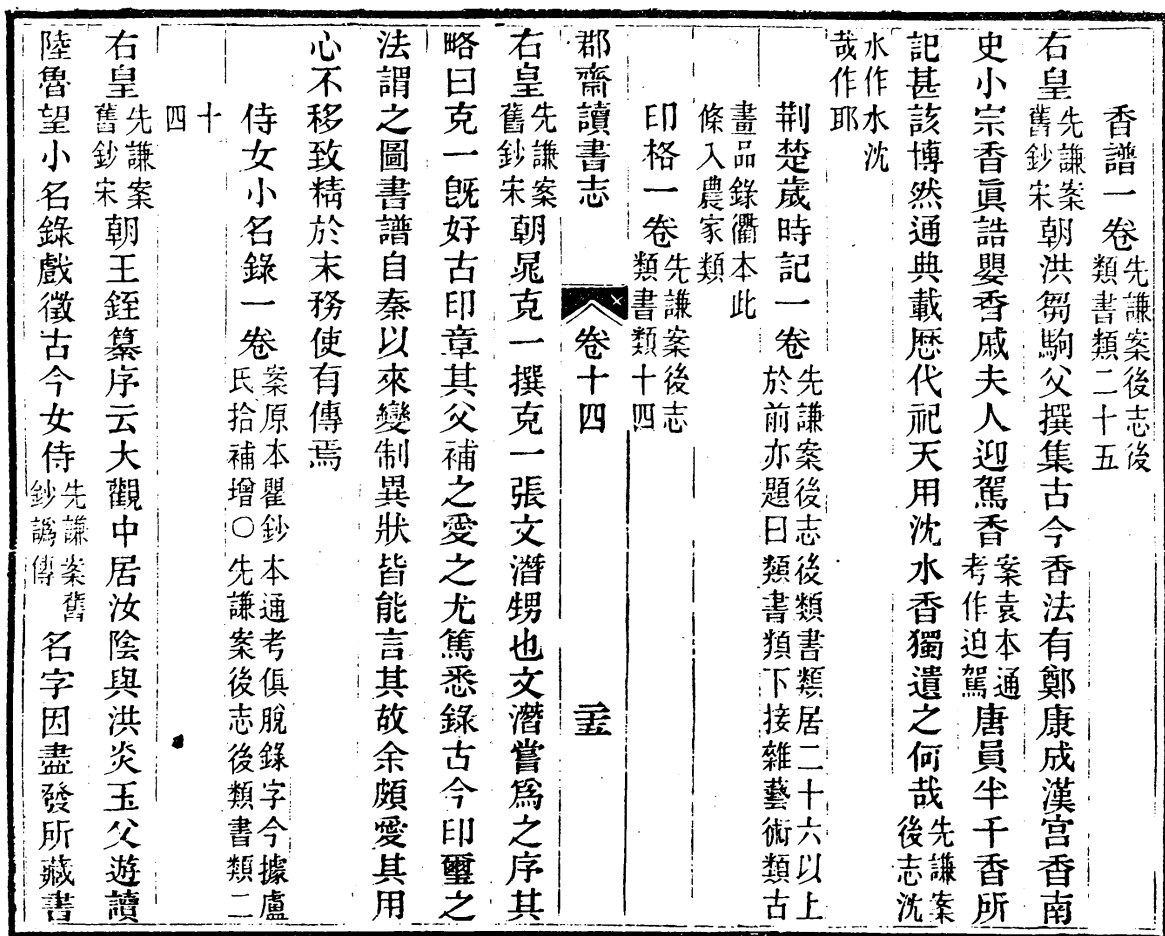 香譜一卷先謙案後志後類書類二十五
右皇先謙案舊鈔宋朝洪芻駒父撰集古今香法有鄭康成漢宫香南
史小宗香眞誥嬰香戚夫人迎駕香案袁本通考作迫駕唐員半千香所
記甚該博然通典載歴代祀天用沈水香獨遺之何哉先謙案後志沈
水作水沈哉作耶
荆楚歲時記一卷先謙案後志後類書類居二十六以上於前亦題曰類書類下接雜藝術類古
畫品錄衢本此條入農家類
印格一卷先謙案後志類書類十四
郡齋讀書志 卷十四 二五
右皇先謙案舊鈔宋朝晁克一撰克一張文潛甥也文潛嘗爲之序其
略曰克一旣好古印章其父補之愛之尤篤悉錄古今印璽之
法謂之圖書譜自秦以來變制異狀皆能言其故余頗愛其用
心不移致精於末務使有傳焉
侍女小名錄一卷案原本瞿鈔本通考俱脫錄字今據盧氏拾補增〇先謙案後志後類書類二
十四
右皇先謙案舊鈔宋朝王銍纂序云大觀中居汝陰與洪炎玉父遊讀
陸魯望小名錄戲徵古今女侍先謙案舊鈔譌傳名字因盡發所藏書